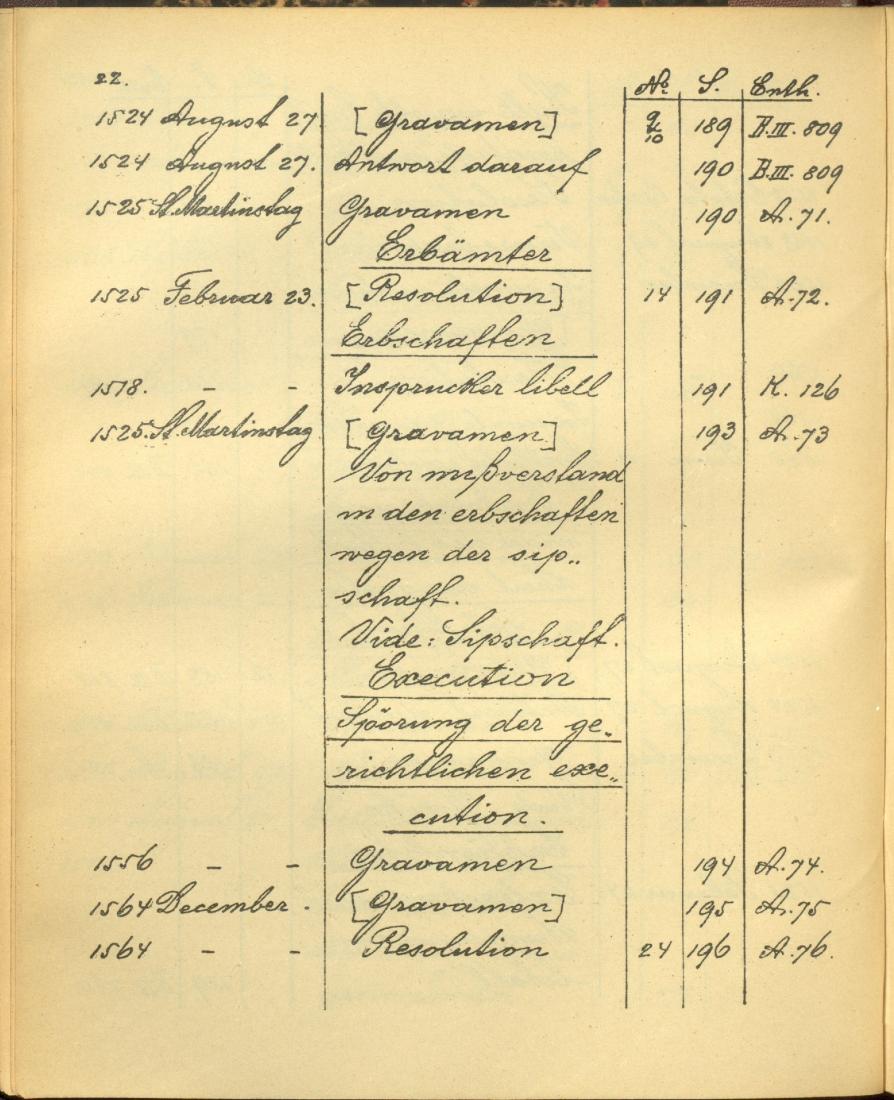 22.
No. S. Enth.
1524 August 27. [Gravamen] 9 & 10 189 B.III. 809
1524 August 27. Antwort darauf 190 B.III. 809
1525 St. Martinstag Gravamen 190 A. 71.
Erbämter
1525 Februar 23. [Resolution] 14 191 A. 72.
Erbschaften
1518. - - Inspruckher libell 191 K. 126
1525. St. Martinstag [Gravamen] 193 A. 73
Von mißverstand
in den erbschaften
wegen der sip„
schaft.
Vide: Sipschaft.
Execution
Spörung der ge„
richtlichen exe„
cution.
1556 - - Gravamen 194 A. 74.
1564 December - [Gravamen] 195 A. 75
1564 - - Resolution 24 196 A. 76.